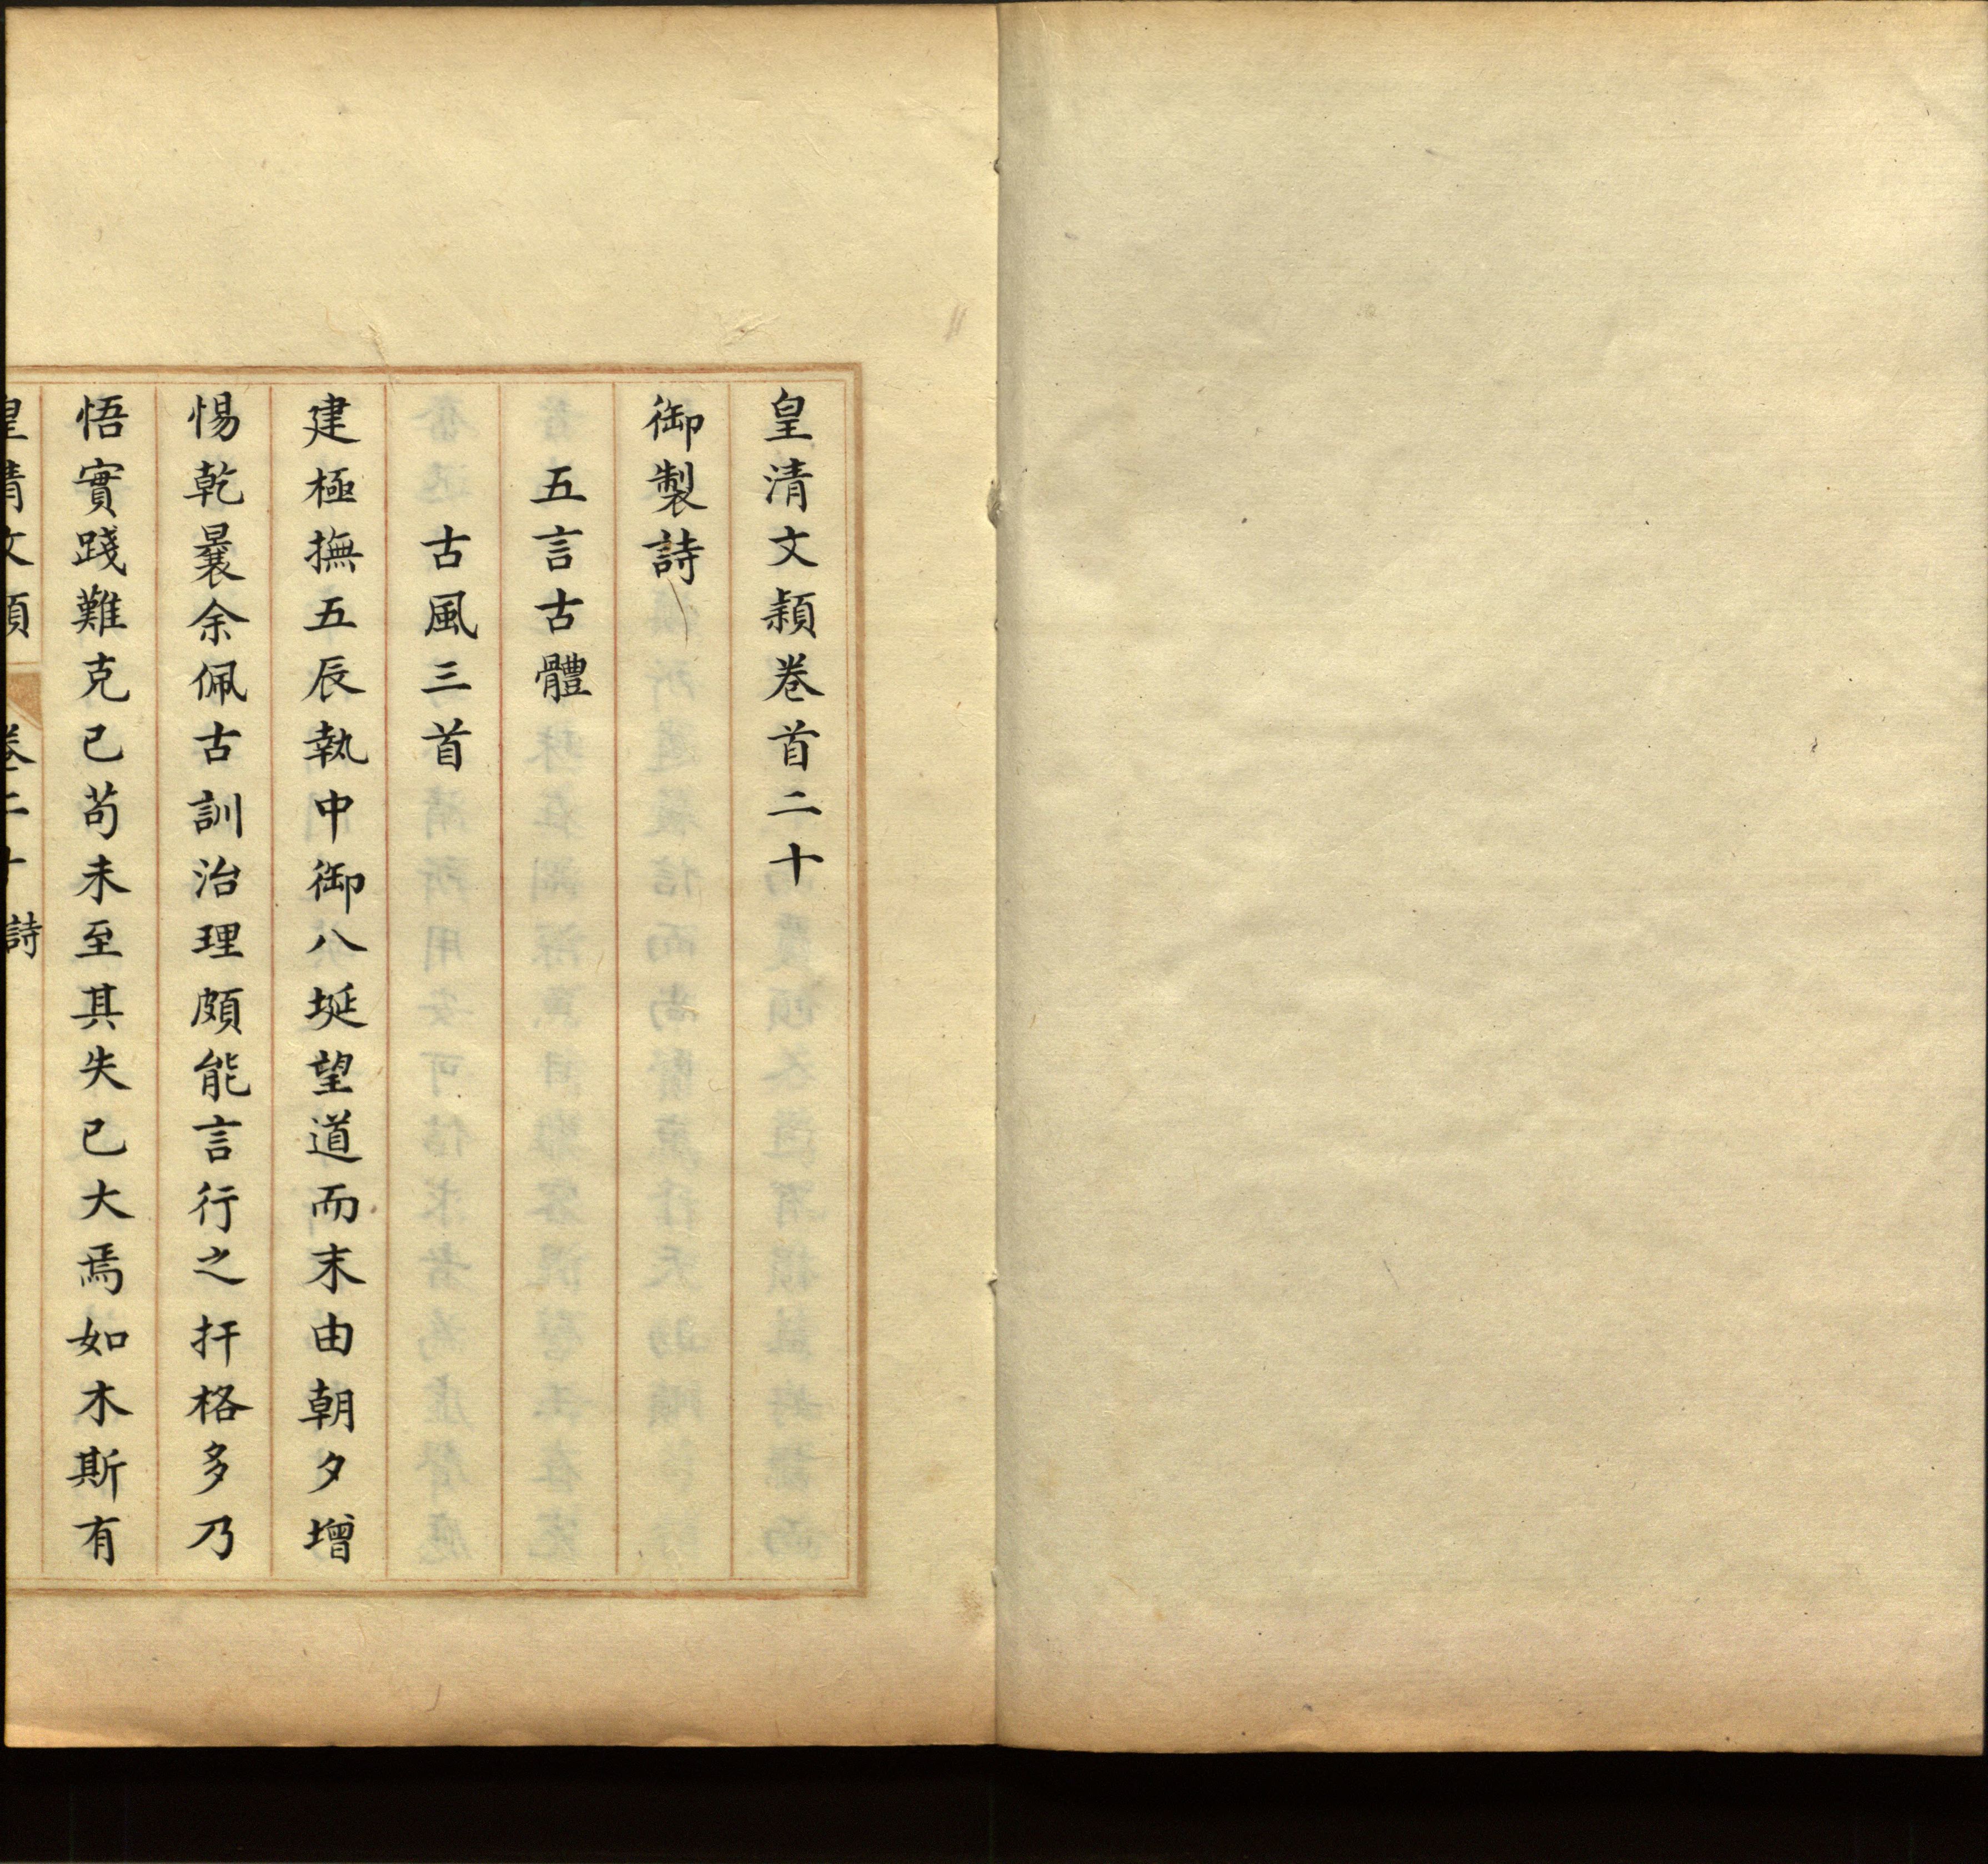 皇清文穎卷首二十
御製詩
五言古體
古風三首
建極撫五辰執中御八埏望道而末由朝夕增
惕乾曩余佩古訓治理頗能言行之扞格多乃
悟實踐難克己茍未至其失已大焉如木斯有
皇清文穎 卷二十 詩